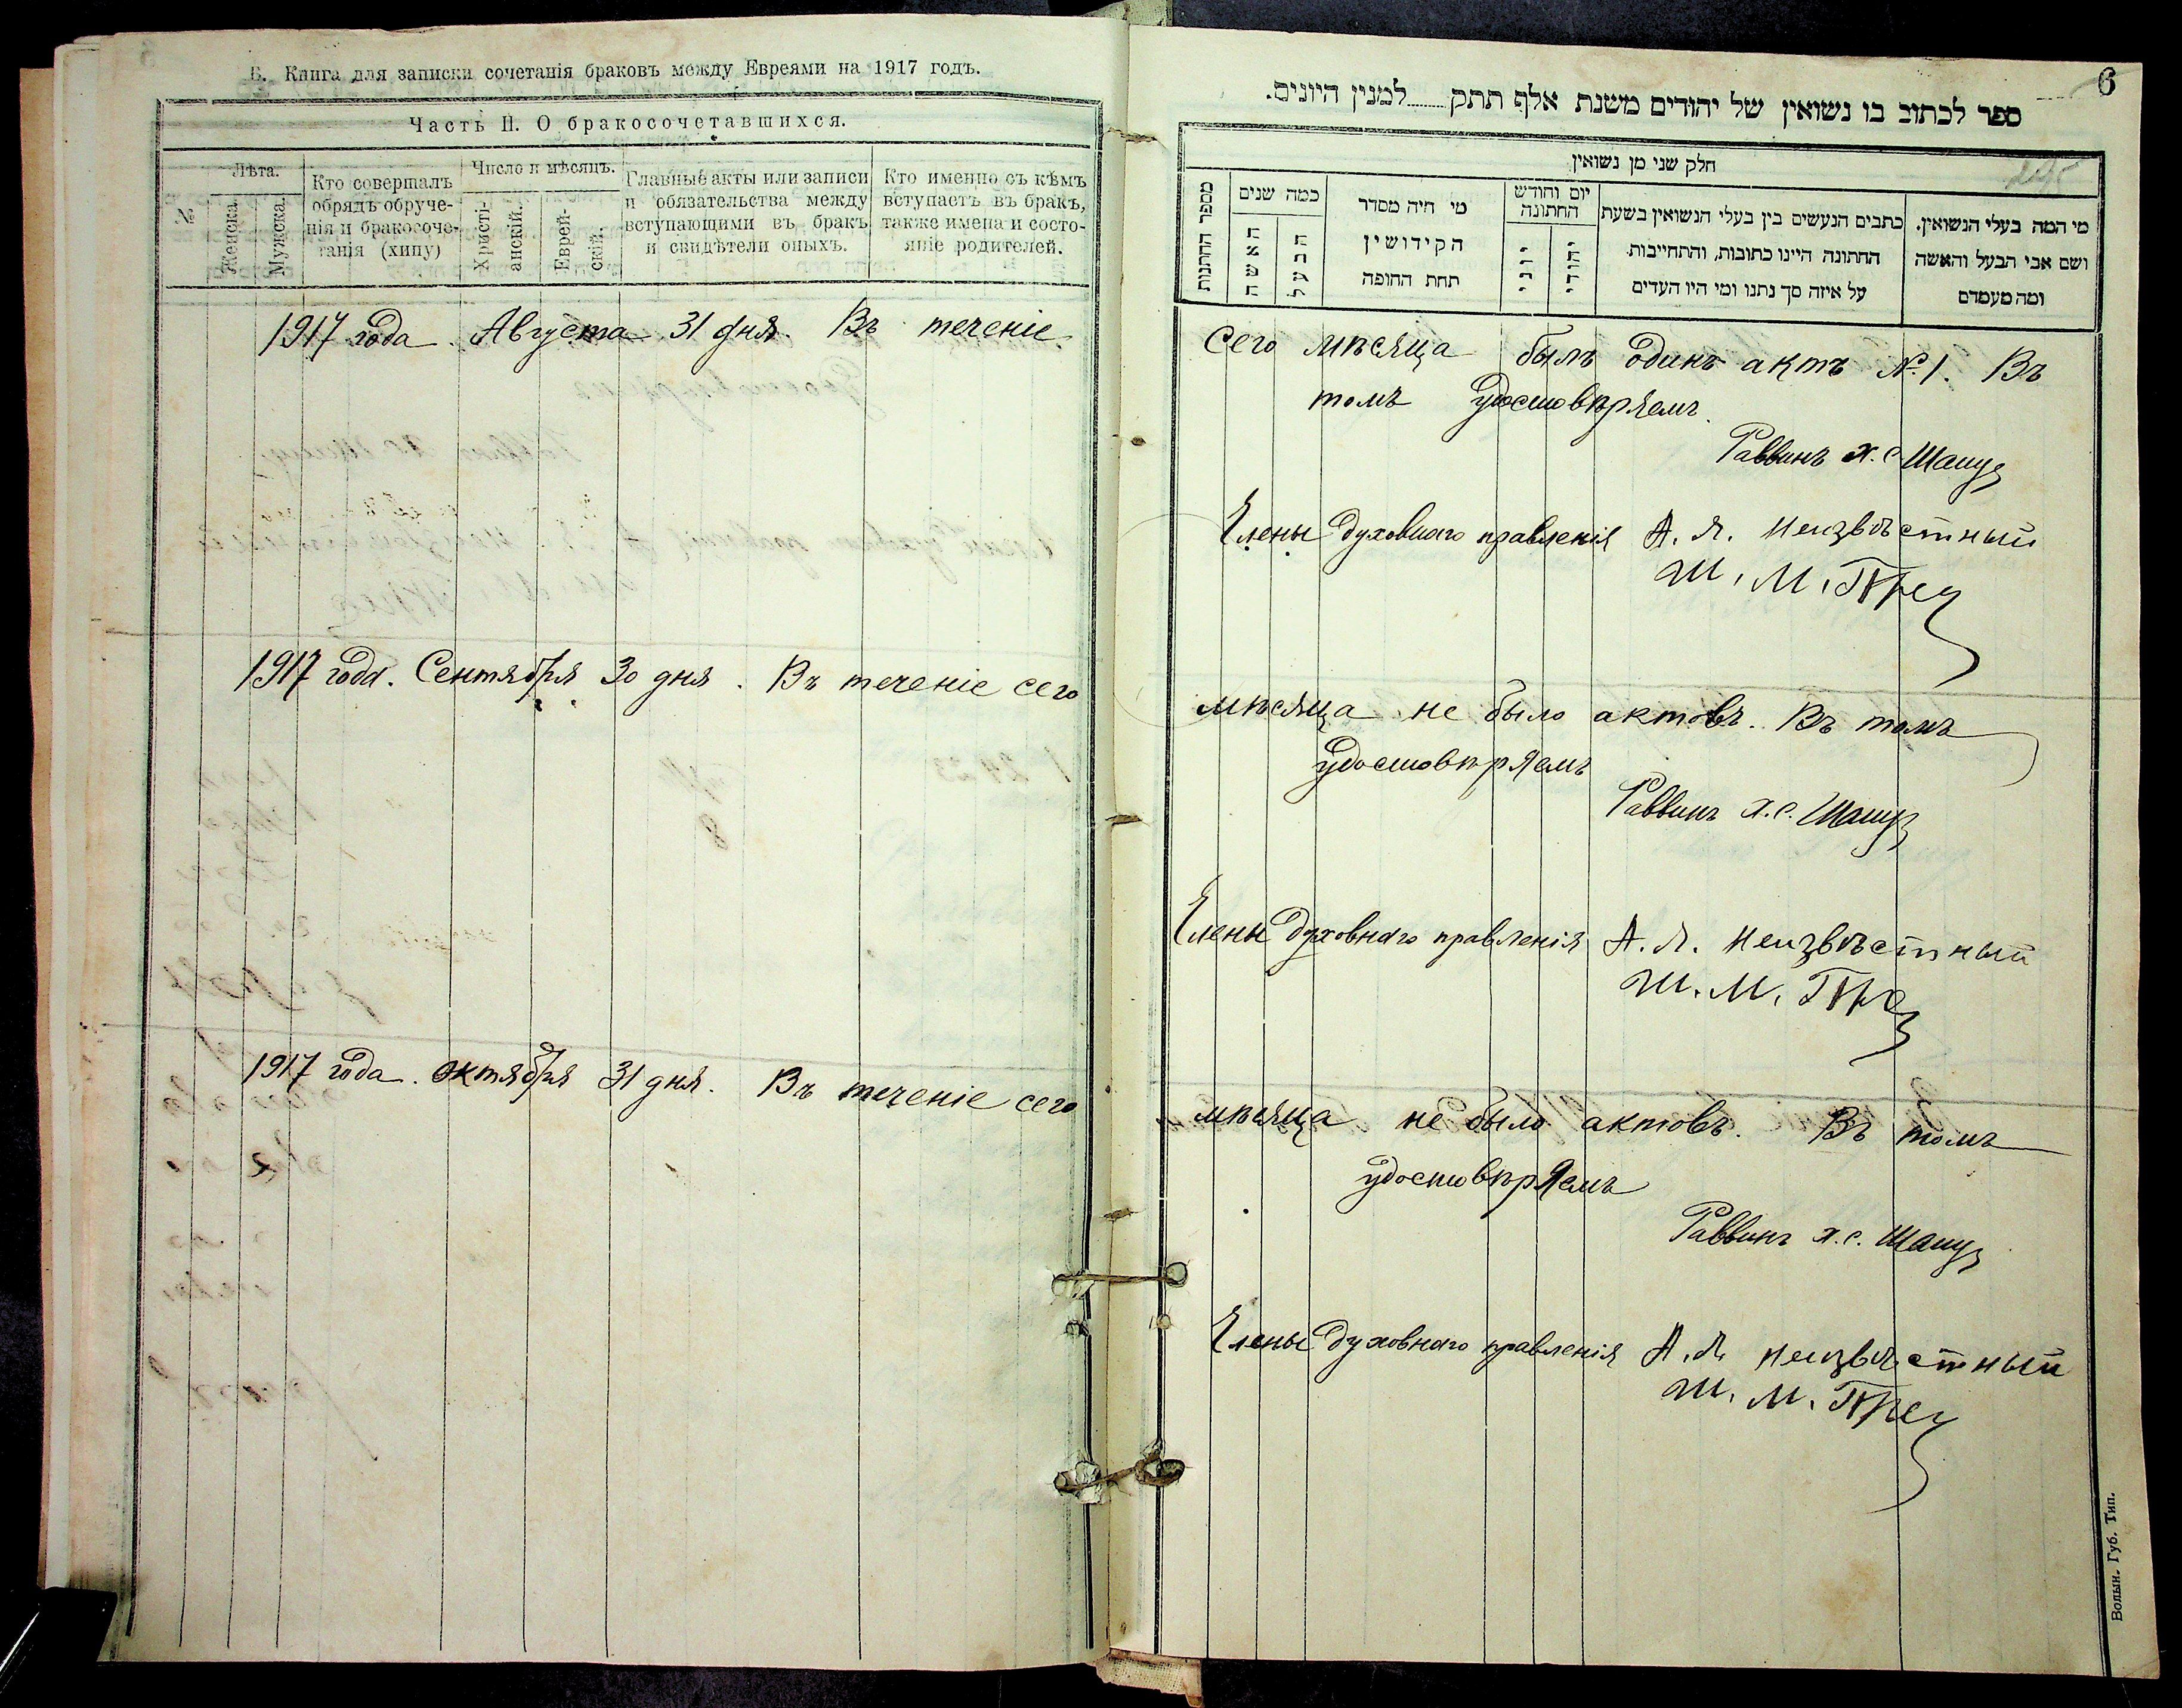 Б. Книга для записки сочетанія браковъ между Евреями на 1917 годъ.
Часть II. О бракосочетавшихся.
№
Лѣта.
Женска.
Мужска.
Кто совершалъ
обрядъ обруче-
нія и бракосоче-
танія (хипу)
Число и мѣсяцъ.
Христі-
анскій.
Еврей-
скій.
Главные акты или записи
и обязательства между
вступающими въ бракъ
и свидѣтели оныхъ.
Кто именно съ кѣмъ
вступаетъ въ бракъ,
также имена и состо-
яніе родителей.
1917 года Августа 31 дня. Въ теченіе
1917 года. Сентября 30 дня. Въ теченіе сего
1917 года. октября 31 дня. Въ теченіе сего
6
ספר לכתוב בו נשואין של יהודים משנת אלף תתק......למנין היונים.
חלק שני מן נשואין
מי המה בעלי הנשואין.
ושם אבי הבעל והאשה
ומה מעמדם
כתבים הנעשים בין בעלי הנשואין בשעת
החתונה היינו כתובות, והתחייבות.
על איזה סך נתנו ומי היו העדים
יום וחודש
החתונה
יהודי
יוני
מי היה מסדר
הקידושין
תחת החופה
כמה שנים
הבעל
האשה
מספר החתנות
сего мѣсяца былъ одинъ актъ №1. Въ
томъ удостовѣряемъ.
Раввинъ Х. С. Шапуз
Члены духовнаго правленія А. Я. Неизвѣстный
Ш. М.
мѣсяца не было актовъ. Въ томъ
удостовѣряемъ
Раввинъ Х. С.
Члены духовнаго правленія А. Я. Неизвѣстный
Ш. М.
мѣсяца не было актовъ. Въ томъ
удостовѣряемъ
Раввинъ Х. С.
Члены духовнаго правленія А. Я. Неизвѣстный
Ш. М.
Волын. Губ. Тип.